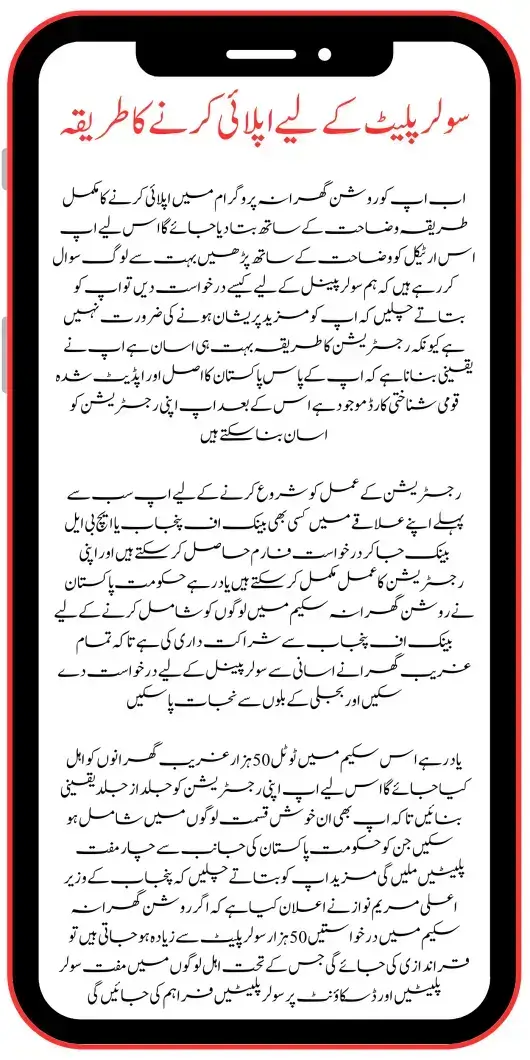 سولر پلیٹ کے لیے اپلائی کرنے کا طریقہ
اب اپ کو روشن گھرانہ پروگرام میں اپلائی کرنے کا مکمل
طریقہ وضاحت کے ساتھ بتا دیا جائے گا اس لیے اپ
اس ارٹیکل کو وضاحت کے ساتھ پڑھیں بہت سے لوگ سوال
کر رہے ہیں کہ ہم سولر پینل کے لیے کیسے درخواست دیں تو اپ کو
بتاتے چلیں کہ اپ کو مزید پریشان ہونے کی ضرورت نہیں
ہے کیونکہ رجسٹریشن کا طریقہ بہت ہی اسان ہے اپ نے
یقینی بنانا ہے کہ اپ کے پاس پاکستان کا اصل اور اپڈیٹ شدہ
قومی شناختی کارڈ موجود ہے اس کے بعد اپ اپنی رجسٹریشن کو
اسان بنا سکتے ہیں
رجسٹریشن کے عمل کو شروع کرنے کے لیے اپ سب سے
پہلے اپنے علاقے میں کسی بھی بینک اف پنجاب یا ایچ بی ایل
بینک جا کر درخواست فارم حاصل کر سکتے ہیں اور اپنی
رجسٹریشن کا عمل مکمل کر سکتے ہیں یاد رہے حکومت پاکستان
نے روشن گھرانہ سکیم میں لوگوں کو شامل کرنے کے لیے
بینک اف پنجاب سے شراکت داری کی ہے تاکہ تمام
غریب گھرانے اسانی سے سولر پینل کے لیے درخواست دے
سکیں اور بجلی کے بلوں سے نجات پا سکیں
یاد رہے اس سکیم میں ٹوٹل 50 ہزار غریب گھرانوں کو اہل
کیا جائے گا اس لیے اپ اپنی رجسٹریشن کو جلد از جلد یقینی
بنائیں تاکہ اپ بھی ان خوش قسمت لوگوں میں شامل ہو
سکیں جن کو حکومت پاکستان کی جانب سے چار مفت
پلیٹیں ملیں گی مزید اپ کو بتاتے چلیں کہ پنجاب کے وزیر
اعلی مریم نواز نے اعلان کیا ہے کہ اگر روشن گھرانہ
سکیم میں درخواستیں 50 ہزار سولر پلیٹ سے زیادہ ہو جاتی ہیں تو
قراندازی کی جائے گی جس کے تحت اہل لوگوں میں مفت سولر
پلیٹیں اور ڈسکاؤنٹ پر سولر پلیٹیں فراہم کی جائیں گی